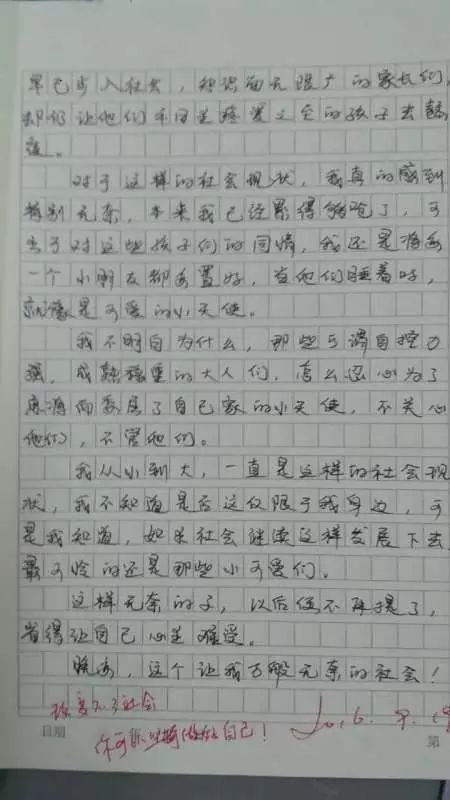 早已步入社会，知识面无限广的家长们，
却仍让他们本因是疼爱之至的孩子去
。
对于这样的社会现状，我真的感到
特别无奈，本来我已经累得够呛了，可
出于对这些孩子们的同情，我还是将每
一个小朋友都安置好，当他们睡着时，
就像是可爱的小天使。
我不明白为什么，那些可谓自控力
强，成熟稳重的大人们，怎么忍心为了
麻将而委屈了自己家的小天使，不关心
他们，不管他们。
我从小到大，一直是这样的社会现
状，我不知道是否这仅限于我身边，可
是我知道，如果社会继续这样发展下去
最可怜的还是那些小可爱们。
这样无奈的事，以后便不再提了，
省得让自己心生难受。
晚安，这个让我万般无奈的社会！
改变不了社会
你可以坚持做好自己！
2016.9.19
日期
第